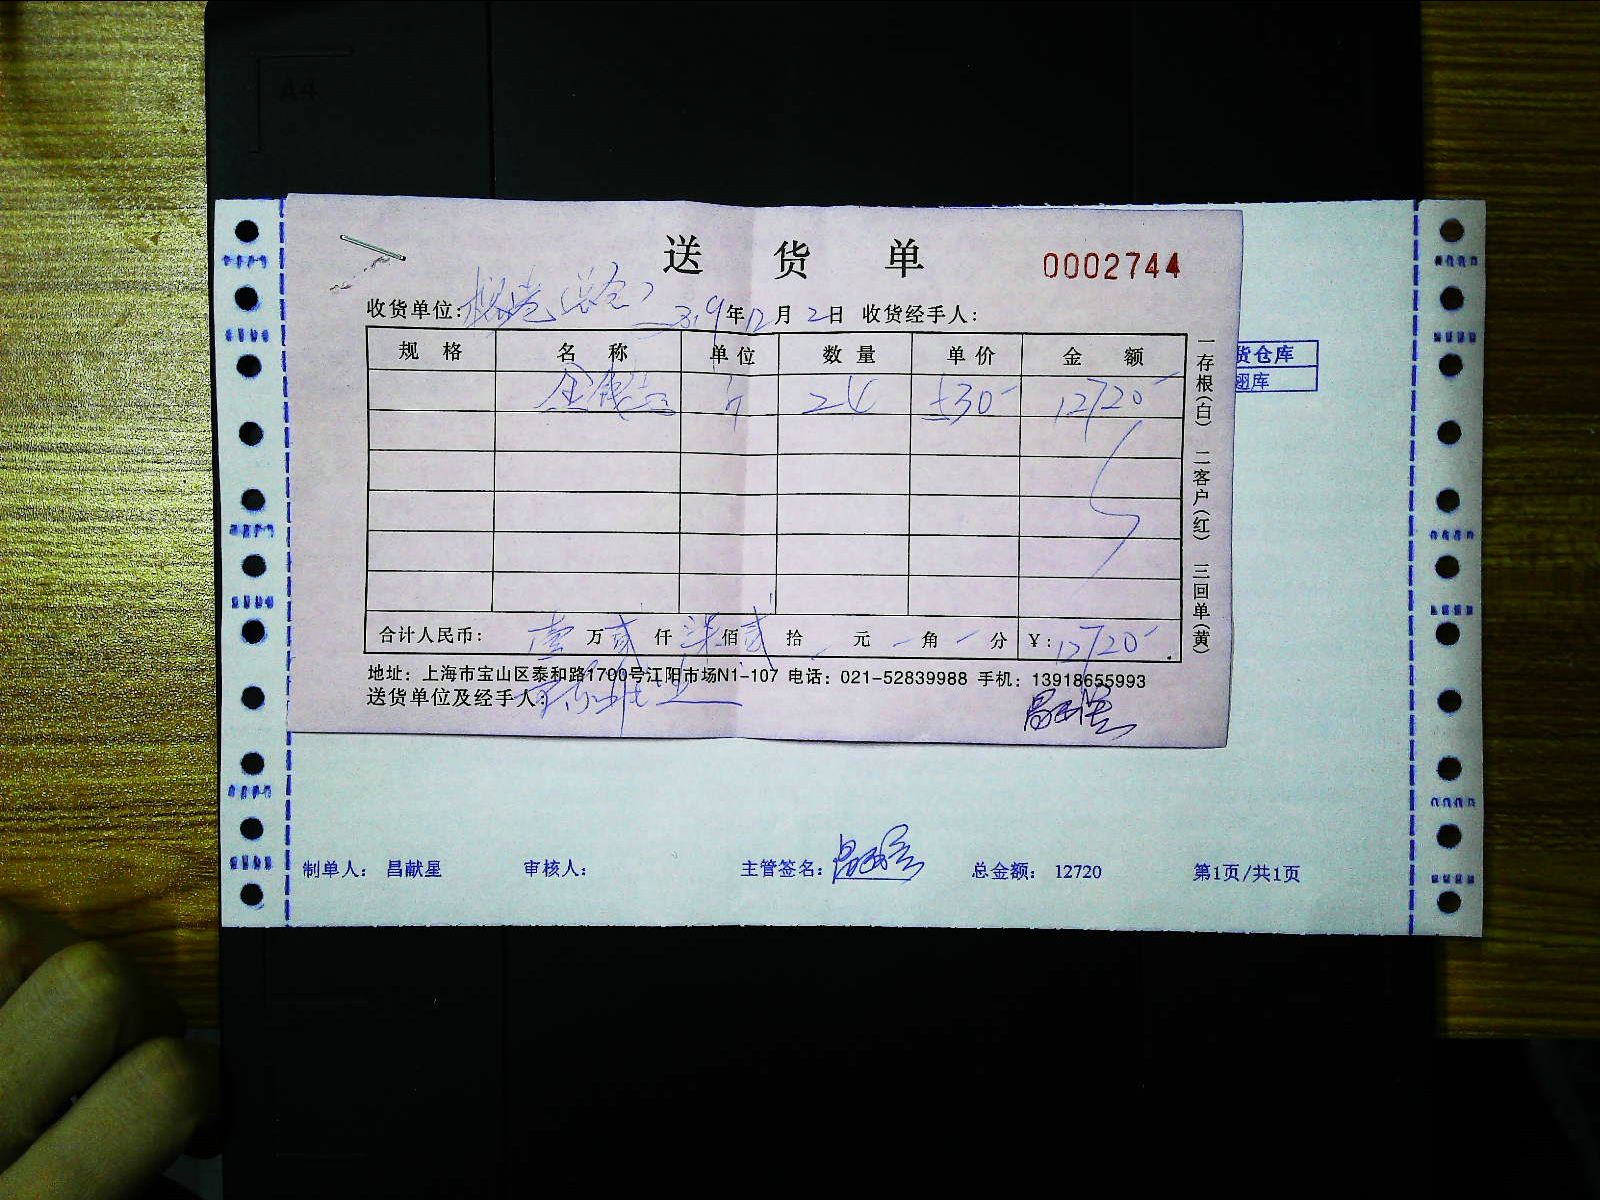 A4
送 货 单
0002744
收货单位: (总仓) 年12月2日 收货经手人:
规格 名称 单位 数量 单价 金额
24 530- 12720-
合计人民币: 壹万贰仟柒佰贰拾 元 角 分 ¥: 12720-
地址: 上海市宝山区泰和路1700号江阳市场N1-107 电话: 021-52839988 手机: 13918655993
送货单位及经手人:
一存根(白) 二客户(红) 三回单(黄)
货仓库
翅库
制单人: 昌献星 审核人: 主管签名: 总金额: 12720 第1页/共1页